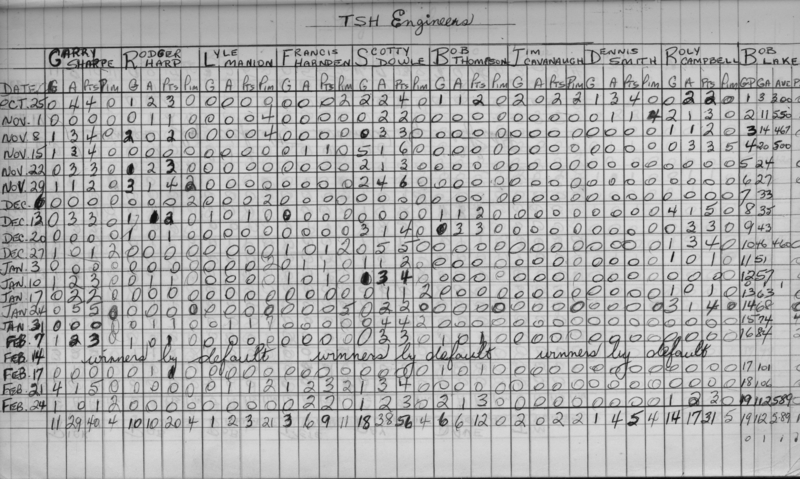 TSH Engineers
GARRY SHARPE RODGER HARP LYLE MANION FRANCIS HARNDEN SCOTTY DOWLE BOB THOMPSON TIM CAVANAUGH DENNIS SMITH ROLY CAMPBELL BOB BLAKE
DATE G A Pts Pim G A Pts Pim G A Pts Pim G A Pts Pim G A Pts Pim G A Pts Pim G A Pts Pim G A Pts Pim G A Pts Pim GP GA AVE
OCT. 25 0 4 4 0 1 2 3 0 0 0 0 0 0 0 0 2 2 2 4 0 1 1 2 0 2 0 2 2 1 3 4 0 0 2 2 0 1 3 3.00
NOV. 1 0 0 0 0 0 1 1 0 0 0 0 4 0 0 0 0 0 2 2 0 0 0 0 0 0 0 0 0 0 1 1 4 2 1 3 0 2 11 550
NOV. 8 1 3 4 0 2 0 2 0 0 0 0 4 0 0 0 0 0 3 3 0 0 0 0 0 0 0 0 0 0 0 0 0 1 1 2 0 3 14 467
NOV. 15 1 3 4 0 0 0 0 0 0 0 0 0 0 1 1 0 5 1 6 0 0 0 0 0 0 0 0 0 0 0 0 0 0 3 3 5 4 20 500
NOV. 22 0 3 3 0 1 2 3 0 0 0 0 0 0 0 0 0 2 1 3 0 0 0 0 0 0 0 0 0 0 0 0 0 0 0 0 0 5 24
NOV. 29 1 1 2 0 3 1 4 2 0 0 0 0 0 0 0 0 2 4 6 0 0 0 0 0 0 0 0 0 0 0 0 0 0 0 0 0 6 27
DEC. 6 7 33
DEC. 13 0 3 3 0 1 0 1 0 0 0 0 0 0 0 0 0 1 1 2 0 0 0 0 0 0 0 0 0 4 1 5 0 8 35
DEC. 20 0 0 0 0 1 0 1 0 0 0 0 0 0 0 0 0 3 1 4 0 0 3 3 0 0 0 0 0 0 0 0 0 0 3 3 0 9 43
DEC. 27 1 0 1 2 0 0 0 0 0 0 0 0 1 0 1 2 0 5 5 0 0 0 0 0 0 0 0 0 0 0 0 0 1 3 4 0 10 46 460
JAN. 3 0 0 0 0 0 0 0 0 0 0 0 0 0 1 1 0 1 1 2 0 0 0 0 0 0 0 0 0 0 0 0 0 1 0 1 0 11 51
JAN. 10 1 2 3 0 1 0 1 0 0 0 0 0 1 0 1 0 1 3 4 0 0 0 0 0 0 0 0 0 0 0 0 0 0 0 0 0 12 57
JAN. 17 0 2 2 0 0 0 0 0 0 0 0 0 0 0 0 0 0 1 1 2 0 0 0 0 0 0 0 0 0 0 0 0 1 0 1 0 13 63
JAN 24 0 5 5 0 0 2 2 0 3 1 4 0 14 68
JAN. 31 0 0 0 0 0 4 4 2 15 74
FEB. 7 1 2 3 0 1 0 1 0 0 2 3 0 1 0 1 0 16 84
FEB. 14 winners by default winners by default winners by default
FEB. 17 17 101
FEB. 21 4 1 5 0 0 0 0 0 0 1 1 2 1 2 3 2 1 3 4 18 106
FEB. 24 1 0 1 2 0 0 0 0 0 0 0 0 0 2 2 0 1 2 3 0 2 1 3 0 0 0 0 0 0 0 0 0 1 2 3 0 19 112 589
11 29 40 4 10 10 20 4 1 2 3 21 3 6 9 11 18 38 56 4 6 6 12 0 2 0 2 2 1 4 5 4 14 17 31 5 19 112 5.89
0 1 1 2